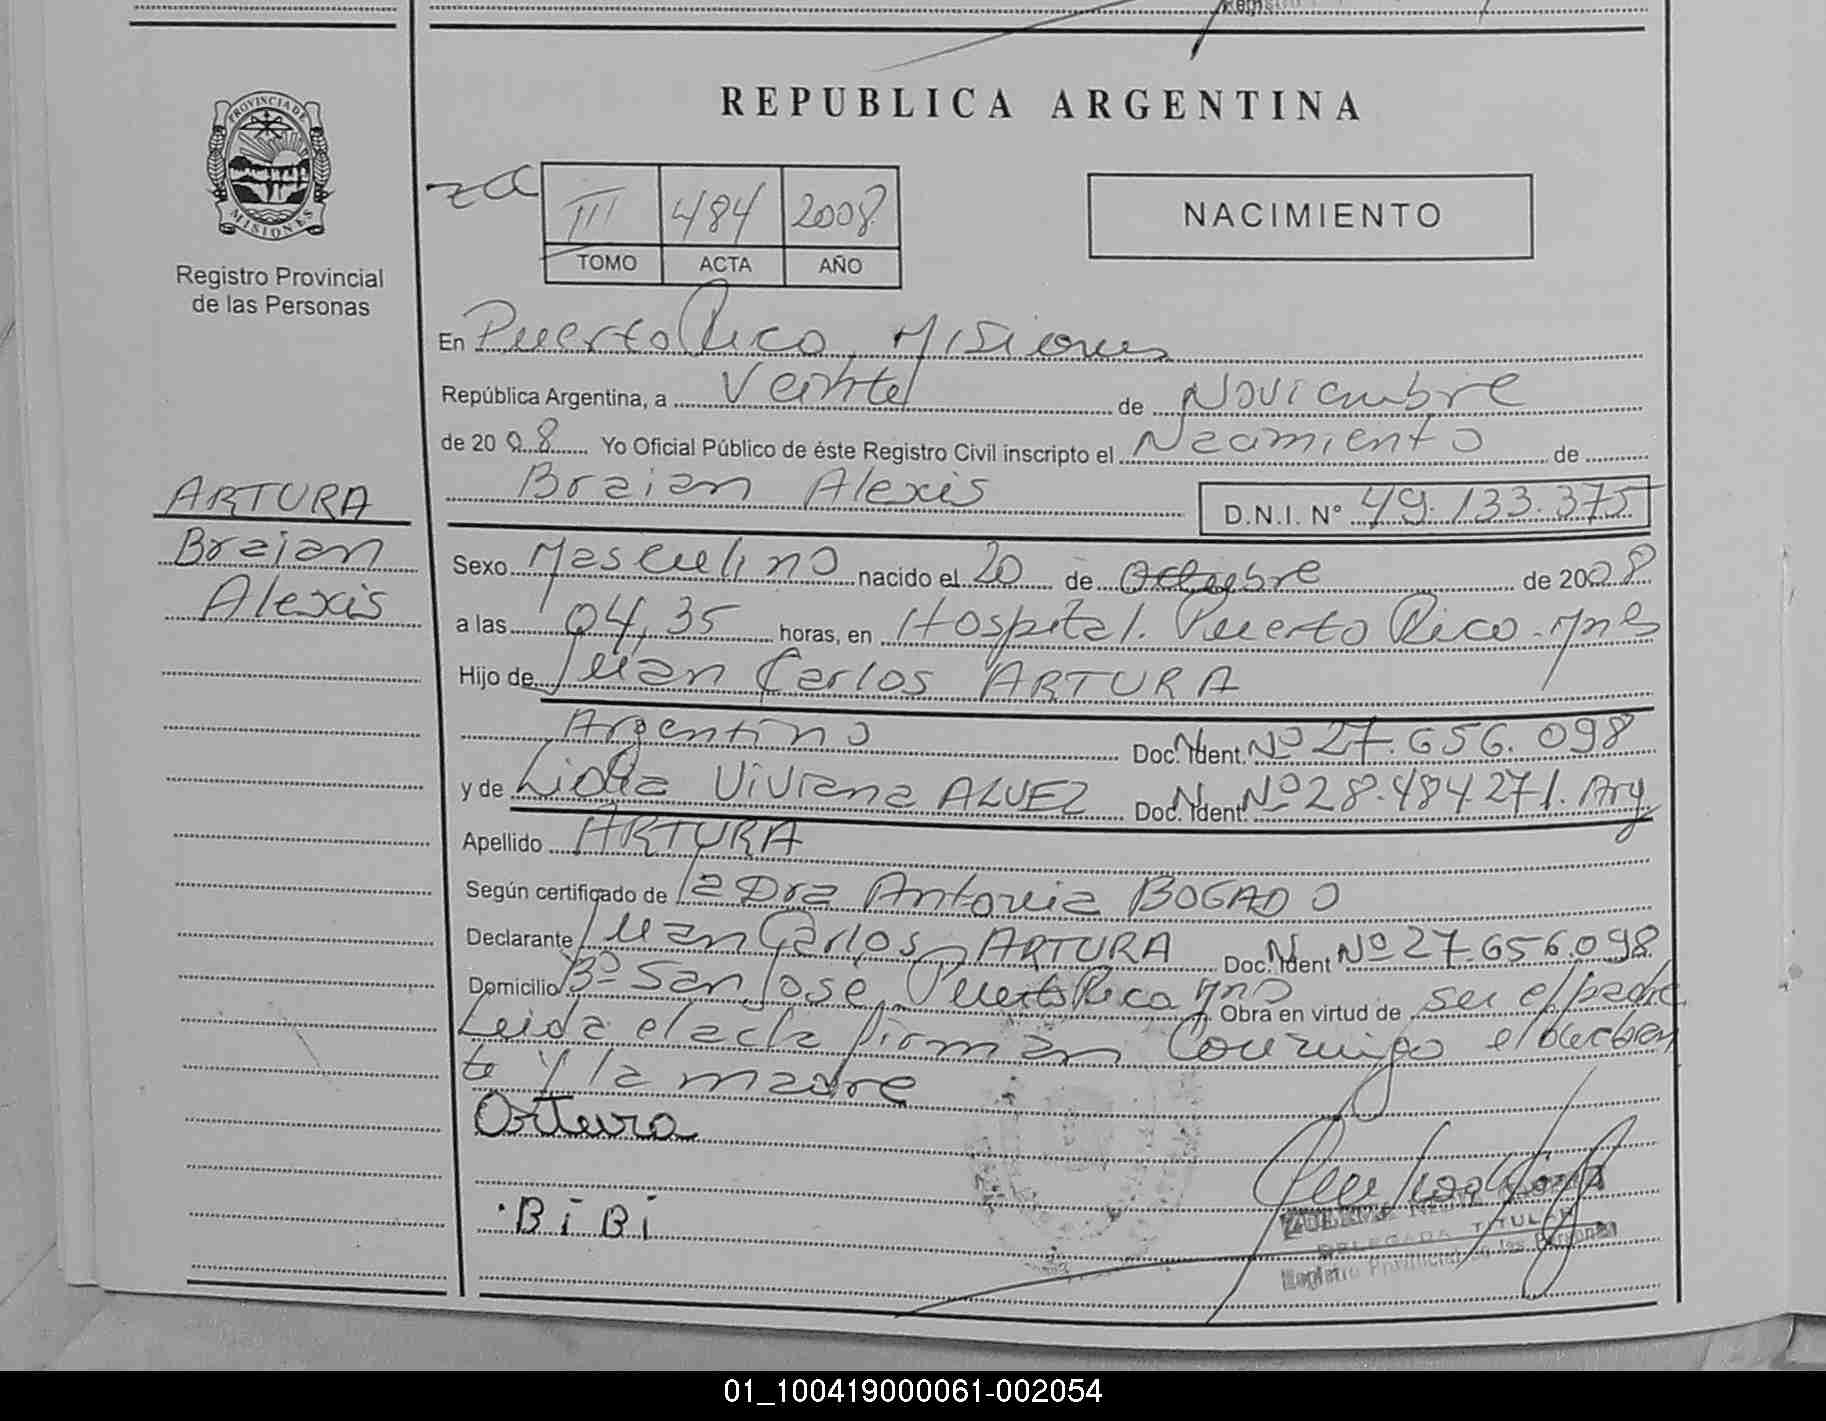 REPUBLICA ARGENTINA
PROVINCIA DE
MISIONES
Registro Provincial
de las Personas
III 484 2008
TOMO ACTA AÑO
NACIMIENTO
En Puerto Rico, Misiones
República Argentina, a Veinte de Noviembre
de 2008 Yo Oficial Público de éste Registro Civil inscripto el Nacimiento de
Braian Alexis D.N.I. N° 49.133.375
ARTURA
Braian
Alexis
Sexo Masculino nacido el 20 de Octubre de 2008
a las 04,35 horas, en Hospital. Puerto Rico. Mnes
Hijo de Juan Carlos ARTURA
Argentino Doc. Ident. Nº 27.656.098
y de Lidia Viviana ALVEZ Doc. Ident. Nº 28.484.271. Arg
Apellido ARTURA
Según certificado de la Dra Antonia BOGADO
Declarante Juan Carlos ARTURA Doc. Ident Nº 27.656.098
Domicilio Bº San José, Puerto Rico Mns Obra en virtud de ser el padre
Leida el acta firman conmigo el
te y la madre
Artura
BiBi
DELEGADA TITULAR
Registro Provincial de las Personas
01_100419000061-002054